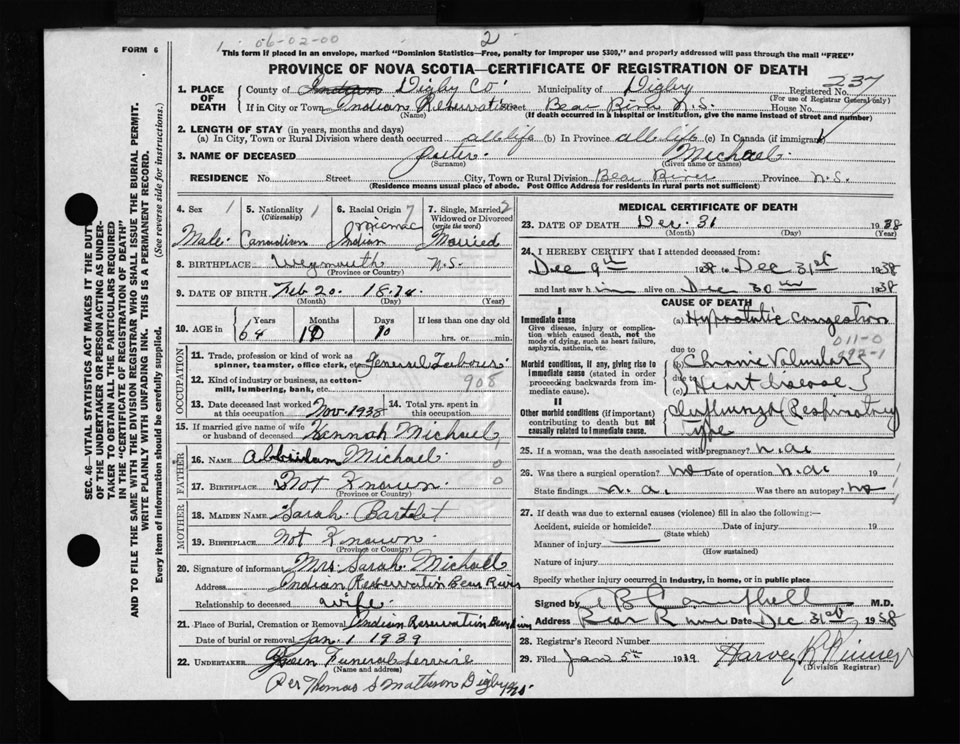 1 06-02-00
2
FORM 6
This form if placed in an envelope, marked "Dominion Statistics—Free, penalty for improper use $300," and properly addressed will pass through the mail "FREE"
PROVINCE OF NOVA SCOTIA—CERTIFICATE OF REGISTRATION OF DEATH
237
1. PLACE OF DEATH County of Digby Co. Municipality of Digby Registered No.
(For use of Registrar General only)
If in City or Town Indian Reservation Street Bear River N.S. House No.
(Name) (If death occurred in a hospital or institution, give the name instead of street and number)
2. LENGTH OF STAY (in years, months and days)
(a) In City, Town or Rural Division where death occurred all life (b) In Province all life (c) In Canada (if immigrant)
3. NAME OF DECEASED Peter Michael
(Surname) (Given name or names)
RESIDENCE No. Street City, Town or Rural Division Bear River Province N.S.
(Residence means usual place of abode. Post Office Address for residents in rural parts not sufficient)
4. Sex 1 5. Nationality 1 (Citizenship) 6. Racial Origin 7 7. Single, Married, 2 Widowed or Divorced (write the word)
Male Canadian Micmac Indian Married
8. BIRTHPLACE Weymouth N.S.
(Province or Country)
9. DATE OF BIRTH Feb 20. 1874
(Month) (Day) (Year)
10. AGE in Years Months Days If less than one day old
64 10 10 hrs. or min.
OCCUPATION
11. Trade, profession or kind of work as spinner, teamster, office clerk, etc. General Labour
908
12. Kind of industry or business, as cotton-mill, lumbering, bank, etc.
13. Date deceased last worked at this occupation Nov. 1938 14. Total yrs. spent in this occupation
15. If married give name of wife or husband of deceased Hannah Michael
FATHER
16. Name Michael
17. Birthplace Not Known
MOTHER
18. Maiden Name Sarah Bartlet
19. Birthplace Not Known
(Province or Country)
20. Signature of informant Mrs. Sarah Michael
Address Indian Reservation Bear River
Relationship to deceased wife
21. Place of Burial, Cremation or Removal Indian Reservation Bear River
Date of burial or removal Jan. 1 1939
22. UNDERTAKER Funeral Service
(Name and address)
Per Thomas S Matheson Digby N.S.
MEDICAL CERTIFICATE OF DEATH
23. DATE OF DEATH Dec. 31 1938
(Month) (Day) (Year)
24. I HEREBY CERTIFY that I attended deceased from:
Dec 9th 1938 to Dec 31st 1938
and last saw him alive on Dec 30th 1938
CAUSE OF DEATH
I
Immediate cause (a) Hypostatic Congestion
Give disease, injury or complication which caused death, not the mode of dying, such as heart failure, asphyxia, asthenia, etc.
011-0
992-1
due to
Morbid conditions, if any, giving rise to immediate cause (stated in order proceeding backwards from immediate cause). (b) Chronic Valvular
due to
(c) Heart Disease
II
Other morbid conditions (if important) contributing to death but not causally related to immediate cause. Influenza Respiratory Type
25. If a woman, was the death associated with pregnancy? n.a.
26. Was there a surgical operation? no Date of operation n.a. 19
State findings n.a. Was there an autopsy? no
27. If death was due to external causes (violence) fill in also the following:—
Accident, suicide or homicide? Date of injury 19
(State which)
Manner of injury
(How sustained)
Nature of injury
Specify whether injury occurred in industry, in home, or in public place
Signed by A B Campbell M.D.
Address Bear River Date Dec 31st 1938
28. Registrar's Record Number
29. Filed Jan 5th 1939 Harvey
(Division Registrar)
SEC. 46—VITAL STATISTICS ACT MAKES IT THE DUTY
OF THE UNDERTAKER OR PERSON ACTING AS UNDER-
TAKER TO OBTAIN ALL THE PARTICULARS REQUIRED
IN THE "CERTIFICATE OF REGISTRATION OF DEATH"
AND TO FILE THE SAME WITH THE DIVISION REGISTRAR WHO SHALL ISSUE THE BURIAL PERMIT.
WRITE PLAINLY WITH UNFADING INK. THIS IS A PERMANENT RECORD.
Every item of information should be carefully supplied. (See reverse side for instructions.)